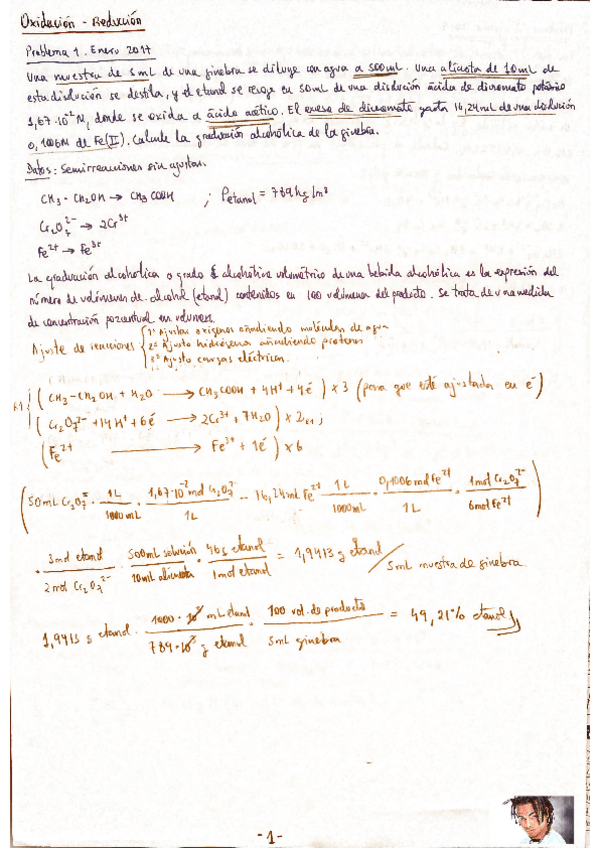 Oxidación - Reducción
Problema 1. Enero 2017
Una muestra de 5 mL de una ginebra se diluye con agua a 500 mL. Una alícuota de 10 mL de
esta disolución se destila, y el etanol se recoge en 50 mL de una disolución ácida de dicromato potásico
1,67·10⁻² M, donde se oxida a ácido acético. El exceso de dicromato gasta 16,24 mL de una disolución
0,1006M de Fe(II). Calcule la graduación alcohólica de la ginebra.
Datos: Semirreacciones sin ajustar.
CH₃-CH₂OH → CH₃COOH ; ρetanol = 789 kg/m³
Cr₂O₇²⁻ → 2Cr³⁺
Fe²⁺ → Fe³⁺
La graduación alcohólica o grado alcohólico volumétrico de una bebida alcohólica es la expresión del
número de volúmenes de alcohol (etanol) contenidos en 100 volúmenes del producto. Se trata de una medida
de concentración porcentual en volumen.
Ajuste de reacciones { 1º Ajustar oxígenos añadiendo moléculas de agua
2º Ajusto hidrógenos añadiendo protones
3º Ajusto cargas eléctricas.
(CH₃-CH₂OH + H₂O → CH₃COOH + 4H⁺ + 4é) x 3 (para que esté ajustada en é)
(Cr₂O₇²⁻ + 14H⁺ + 6é → 2Cr³⁺ + 7H₂O) x 2
(Fe²⁺ → Fe³⁺ + 1é) x 6
(50 mL Cr₂O₇²⁻ · 1L/1000 mL · 1,67·10⁻² mol Cr₂O₇²⁻/1L - 16,24 mL Fe²⁺ · 1L/1000mL · 0,1006 mol Fe²⁺/1L · 1 mol Cr₂O₇²⁻/6 mol Fe²⁺)
· 3 mol etanol/2 mol Cr₂O₇²⁻ · 500 mL solución/10 mL alícuota · 46 g etanol/1 mol etanol = 1,9413 g etanol / 5 mL muestra de ginebra.
1,9413 g etanol · 1000·10³ mL etanol/789·10³ g etanol · 100 vol. de producto/5 mL ginebra = 49,21% etanol
-1-